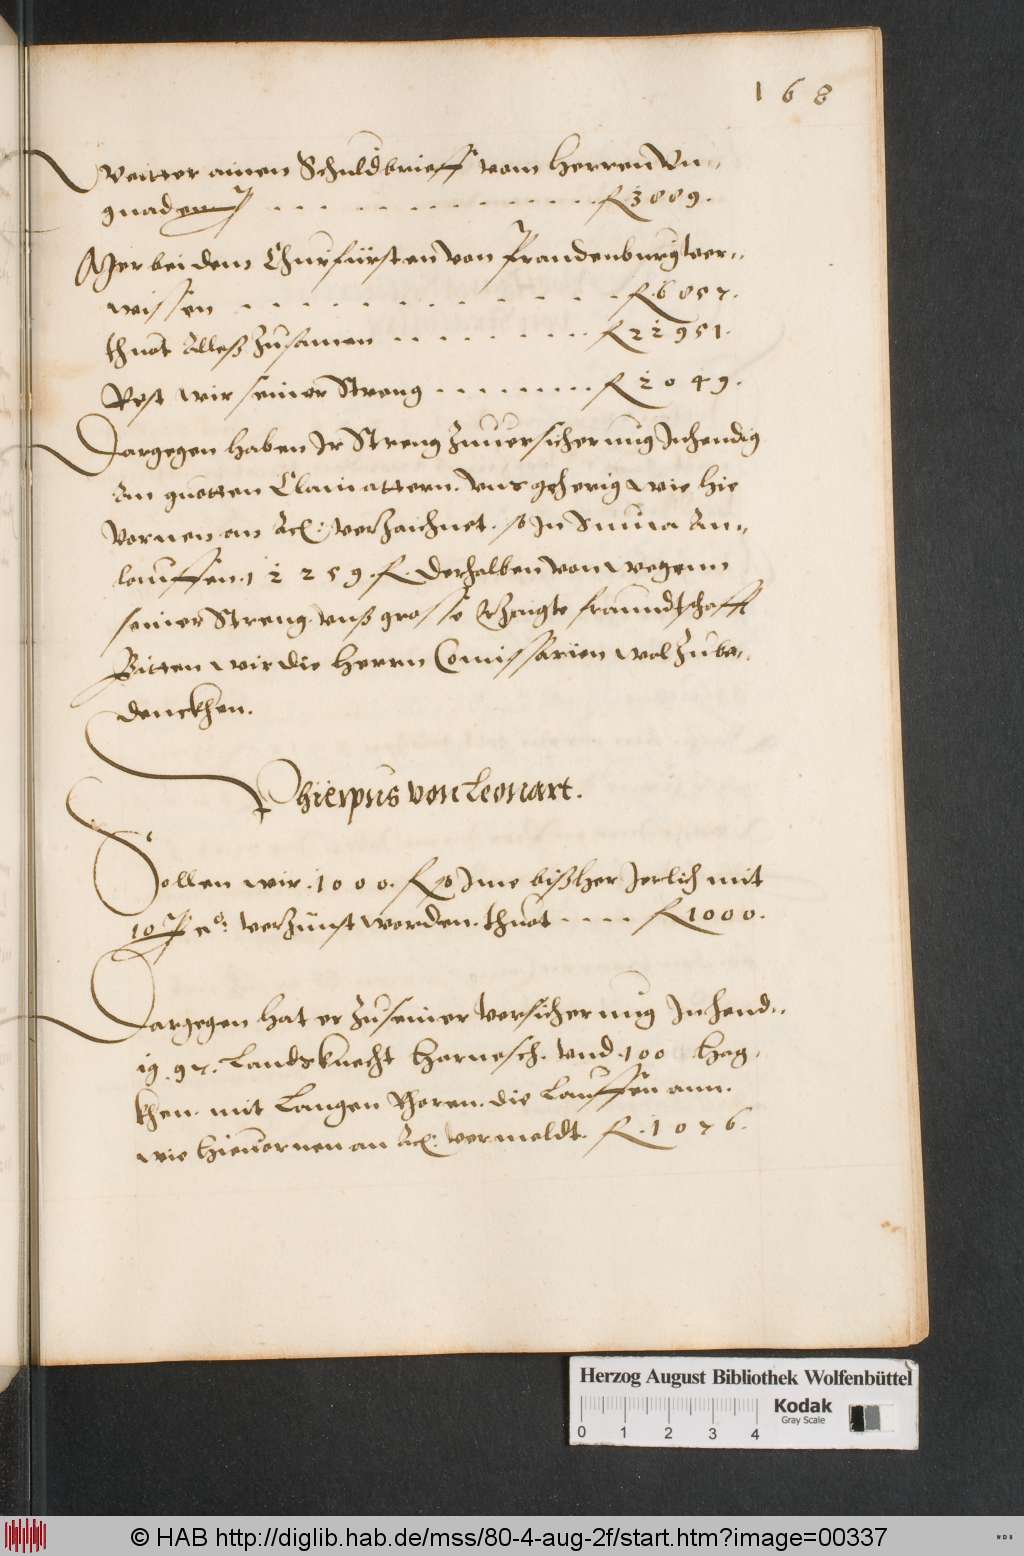 168
Weitter ainen Schuldbrieff vom Herren Vn-
gnaden . . . . . . . . . . . . . . . fl 3009.
Mer bei dem Churfürsten von Brandenburg ver-
wissen . . . . . . . . . . . . . . . fl. 6857.
thuet Alleß Zusamen . . . . . . . . fl 22951.
Rest wir seiner Streng . . . . . . . . fl 2049.
Dargegen haben Ir Streng Zuuersicherung Inhendig
An guetten Clainattern. vnß geherig wie hie
Vornen an verzaichnet. so In Suma An-
lauffen. 12259. fl. Derhalben von wegenn
seiner Streng. vnß grosse Erzaigte fraundtschafft
Bitten wir die Herrn Comissarien wol Zu be-
denckhen.
von Leonart.
Sollen wir. 1000. fl so Ime bißher Jerlich mit
10 p co: verzünst worden. thuet . . . . fl 1000.
Dargegen hat er Zu seiner versicherung Inhend-
ig. 97. Landsknecht Harnesch. vnd. 100 Hag-
khen. mit Langen Rhoren. die Lauffen ann.
wie hieuornen an vermeldt. fl. 1076.
Herzog August Bibliothek Wolfenbüttel
Kodak
Gray Scale
0 1 2 3 4
© HAB http://diglib.hab.de/mss/80-4-aug-2f/start.htm?image=00337